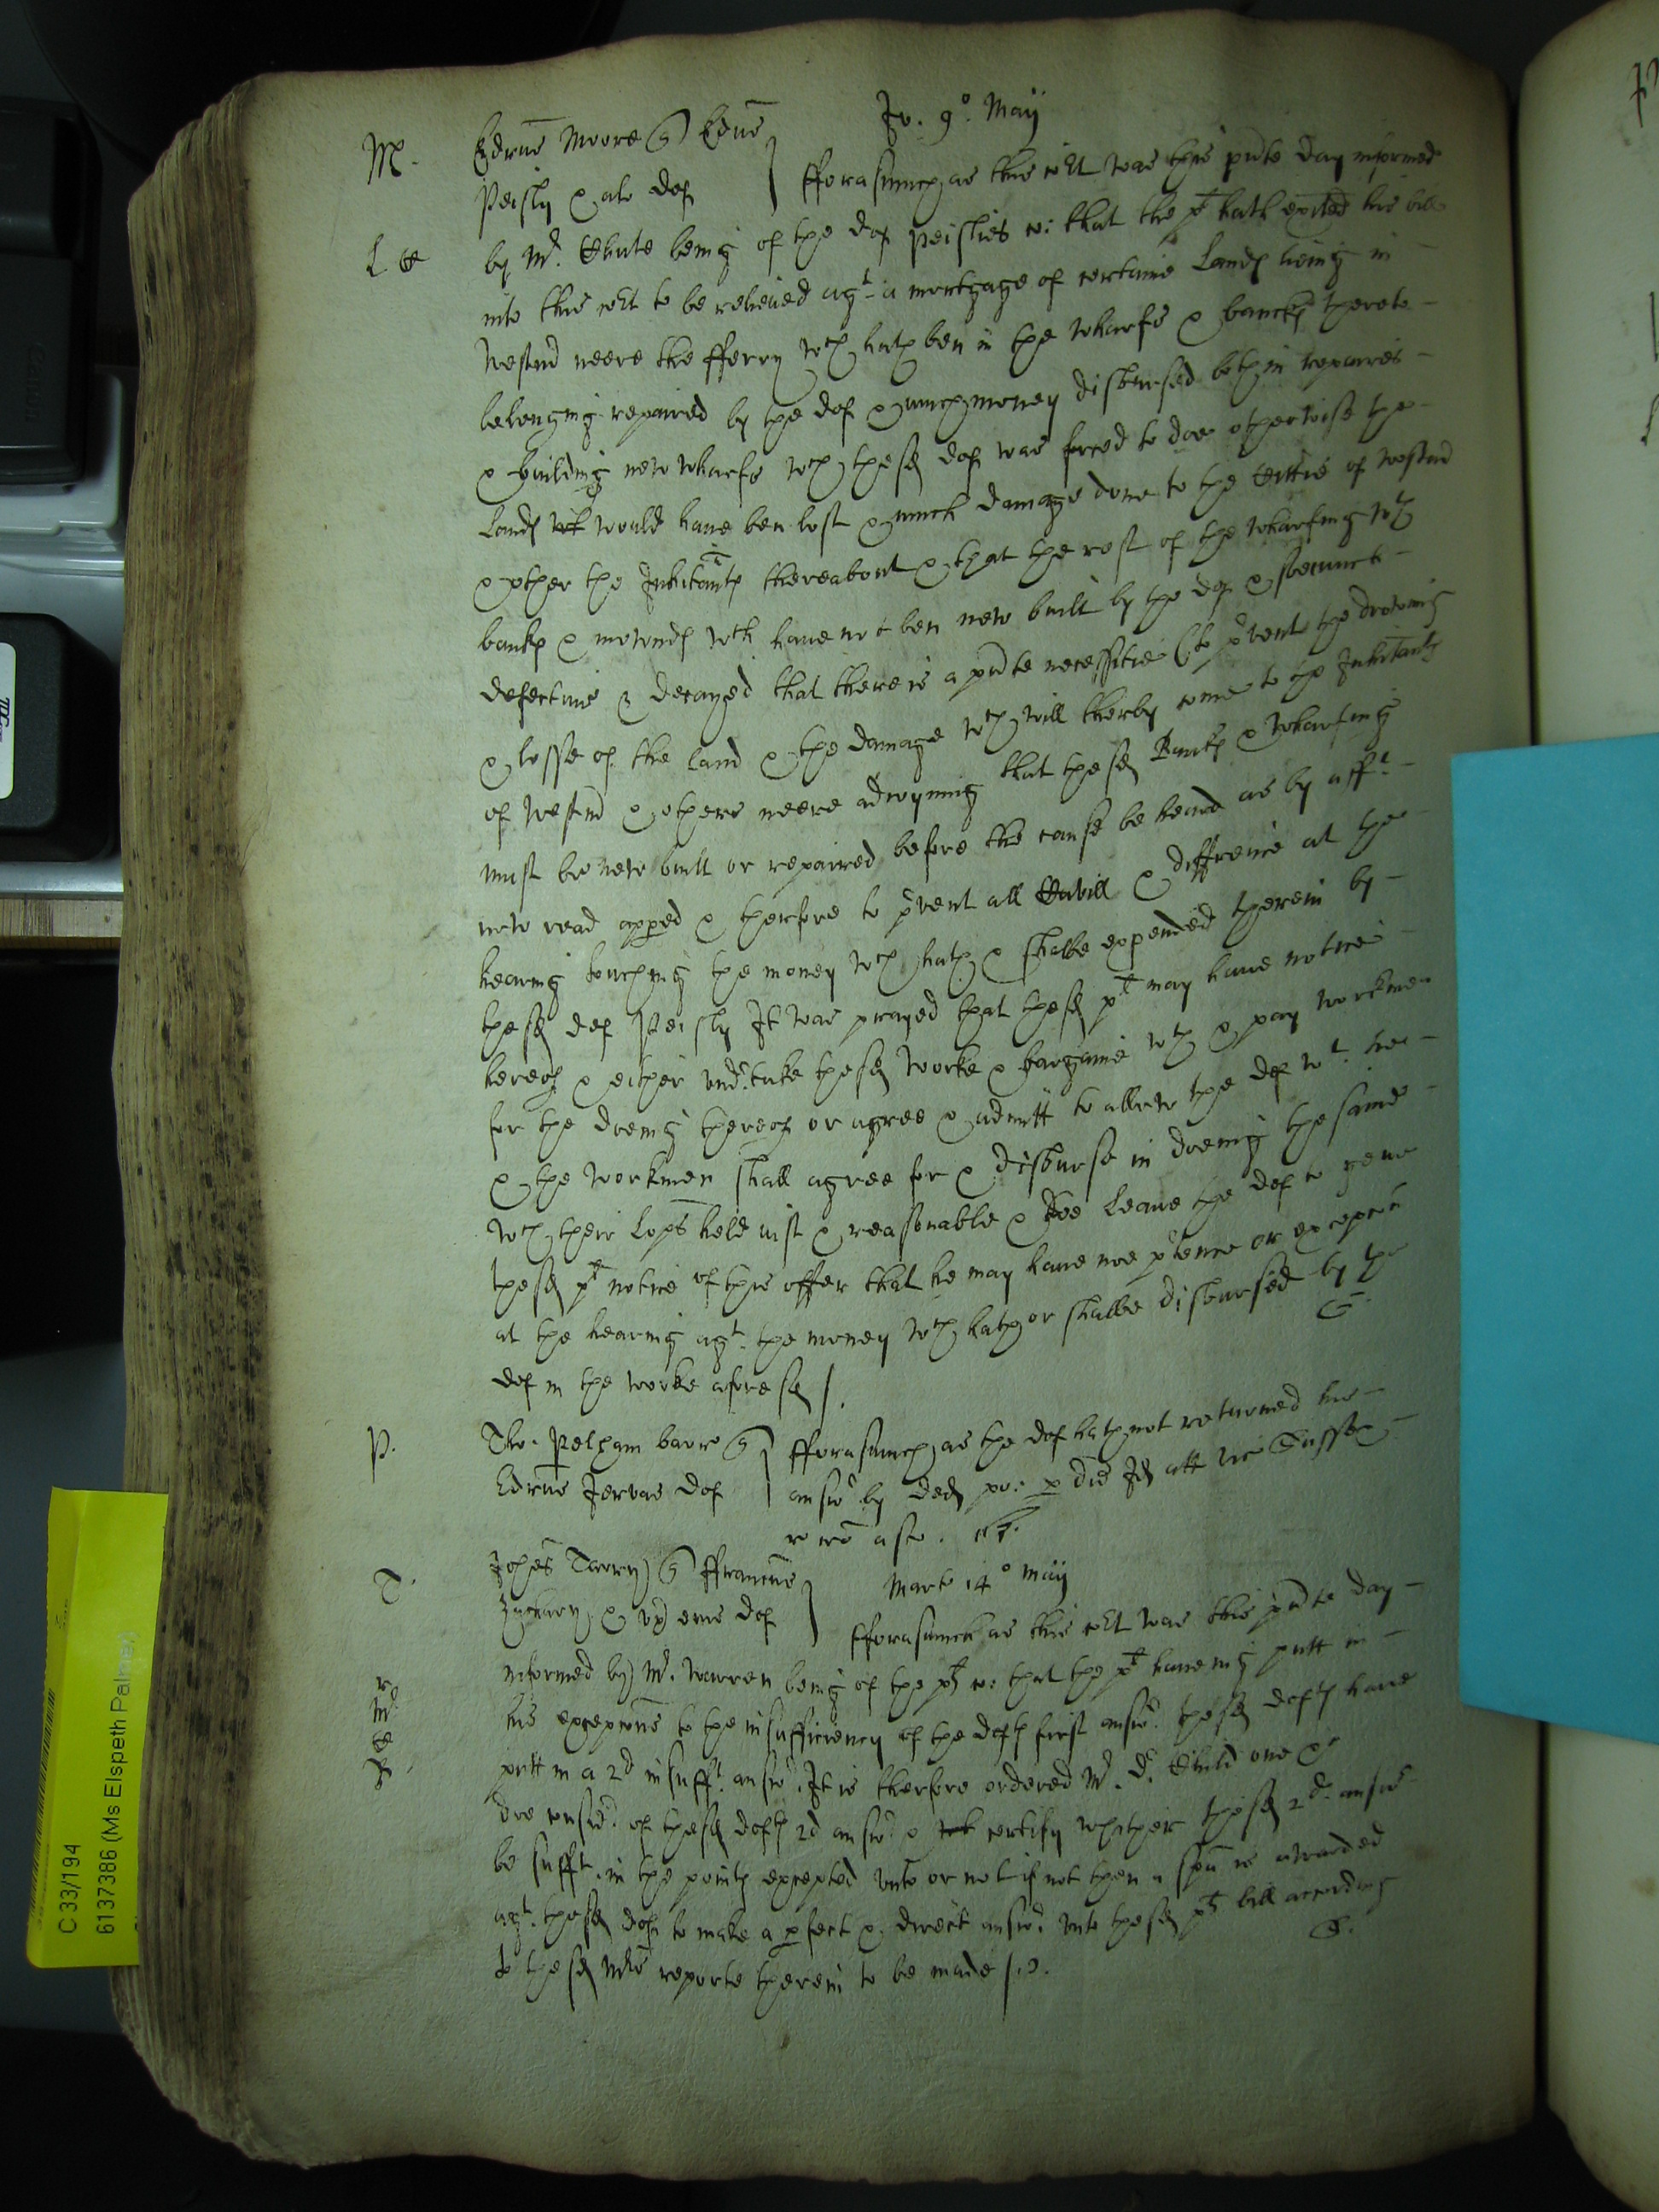 M. Edrus Moore q Edus Jo. 9° May
Peisly & als def } fforasmuch as this Court was this pnte day informed
by Mr. Chute being of the def Peislies co: that the pt hath exited his bill
into this Court to be releived agt. a mortgage of certaine Lands lieing in
neere the fferry wch hath ben in the wharfe & bancks thereto
belonging repaired by the def & much money disbursed both in repaires
& building new wharfs wch the sd def was forced to doe otherwise the
Lands would have ben lost & much damage done to the of
& other the Inhitants thereabout & that the rest of the wharfing wth
banks & which have not ben new built by the def &
defective & decayed that there is a pnte necessitie (to pvent the drowning
& losse of the land & the damage wch will therby come to the Inhitants
of & others neere adioyning that the sd Banks & wharfing
must be new built or repaired before the cause be heard as by afft.
now read apped & therfore to pvent all Cavill & diffrence at the
hearing touching the money wch hath & shalbe expended therein by
the sd def Peisly It was prayed that the sd pt may have notice
hereof & either undertake the sd worke & bargaine wth & pay workmen
for the doeing thereof or agree & admitt to allow the def wt. hee
& the workmen shall agree for & disburse in doeing the same
wch their Lops held iust & reasonable & doe Leave the def to geve
the sd pt notice of this offer that he may have noe ptence or excepcon
at the hearing agt. the money wch hath or shalbe disbursed by the
def in the worke aforesd
P. Tho. Pelham barre q } fforasmuch as the def hath not returned his
Edrus Jervas def } answ by ded po: p die Jd att vic Sussex
T. Johes Terry q ffrancus Marte 14° May
Zachary & ux eius def } fforasmuch as this Court was this pnte day
informed by Mr. Warren being of the pts co: that the pt haveing putt in
his excepcons to the insufficiency of the defts first answ. the sd defts have
putt in a 2d insufft. answ. It is therfore ordered Mr. Dr. Child one &c
doe consid. of the sd defts 2d answ. & certify whether the sd 2d. answ
be sufft. in the points excepted unto or not if not then a spa is awarded
agt. the sd defts to make a pfect & direct answ. unto the sd pts bill according
to the sd Mrs reporte therein to be made
C 33/194
6137386 (Ms Elspeth Palmer)
Canon